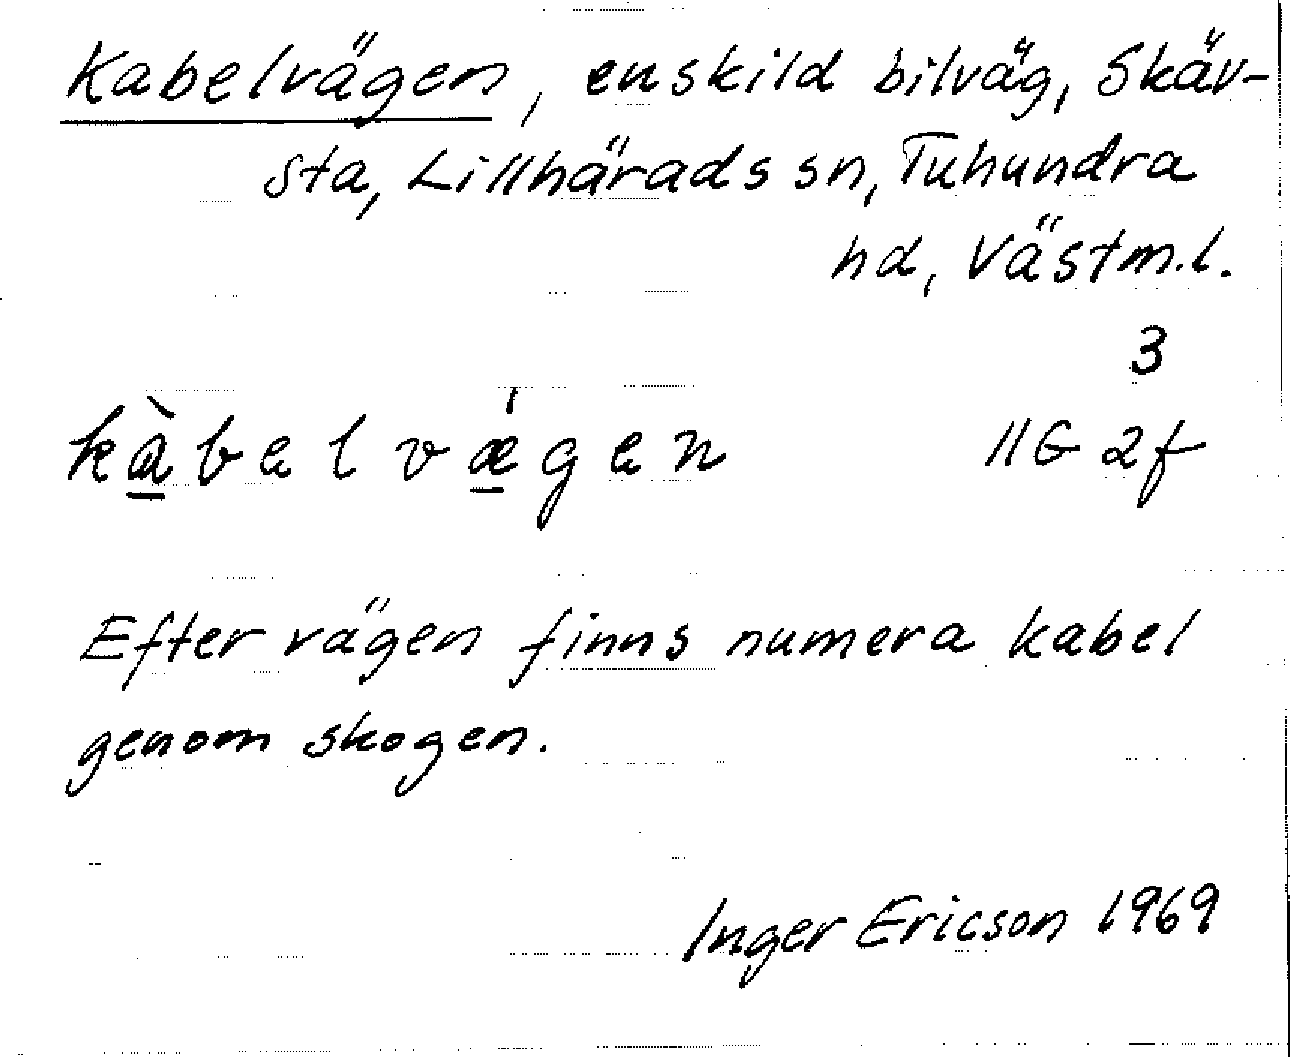 Kabelvägen, enskild bilväg, Skäv-
sta, Lillhärads sn, Tuhundra
hd, Västm.l.
3
kàbelvǽgen 11G 2f
Efter vägen finns numera kabel
genom skogen.
Inger Ericson 1969